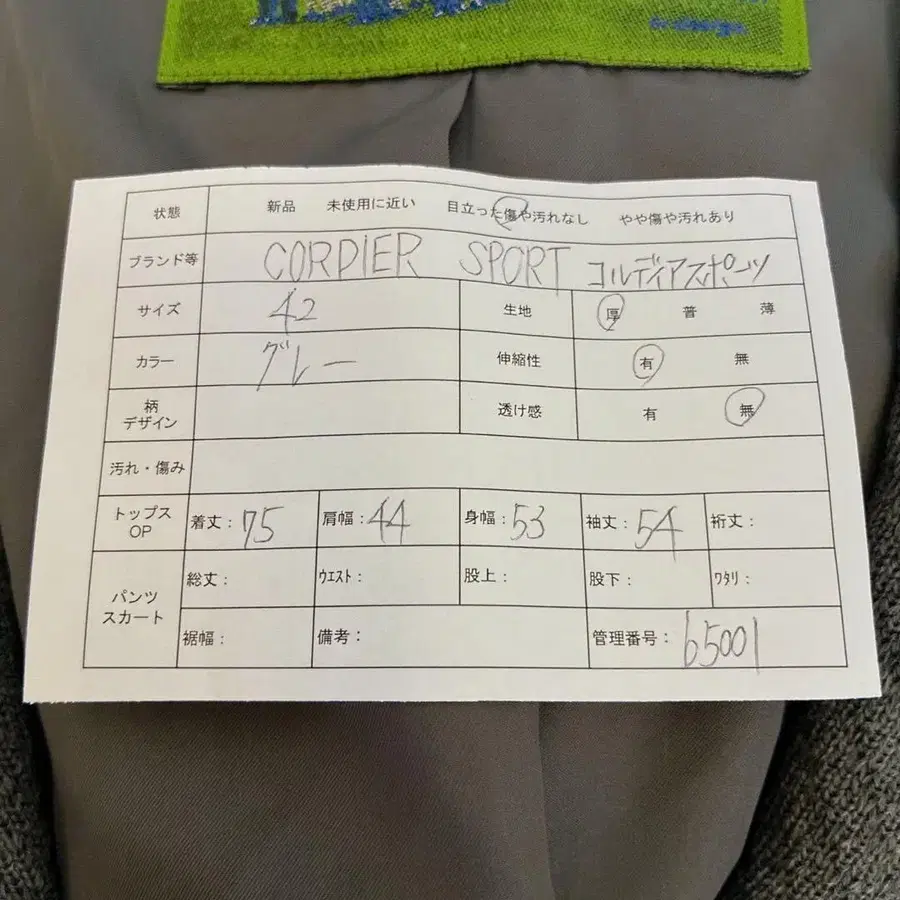 状態 新品 未使用に近い 目立った傷や汚れなし やや傷や汚れあり
ブランド等 CORDIER SPORT コルディアスポーツ
サイズ 42 生地 厚 普 薄
カラー グレー 伸縮性 有 無
柄
デザイン 透け感 有 無
汚れ・傷み
トップス
OP 着丈: 75 肩幅: 44 身幅: 53 袖丈: 54 裄丈:
パンツ
スカート 総丈: ウエスト: 股上: 股下: ワタリ:
裾幅: 備考: 管理番号: 65001